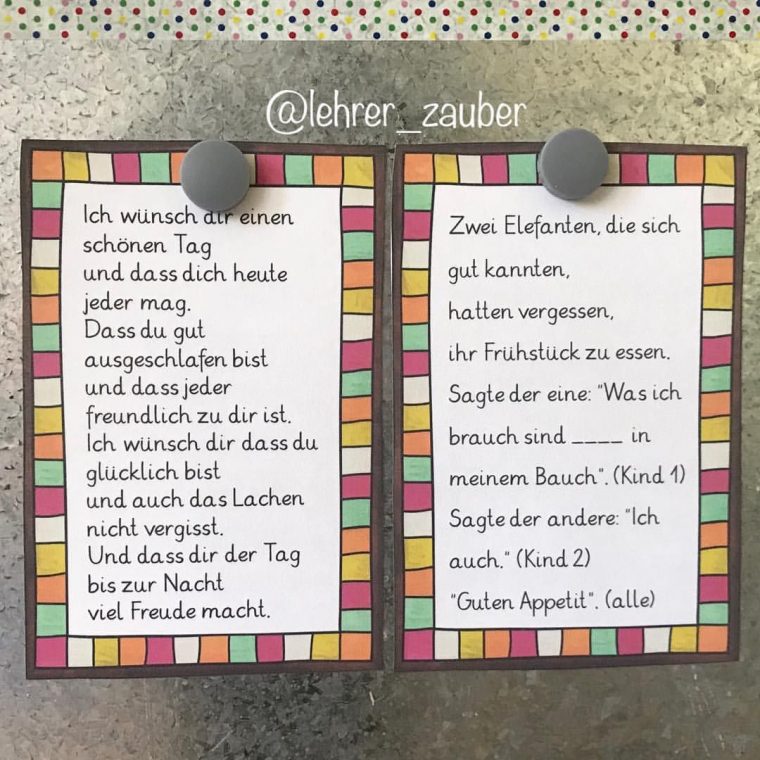 @lehrer_zauber
Ich wünsch dir einen
schönen Tag
und dass dich heute
jeder mag.
Dass du gut
ausgeschlafen bist
und dass jeder
freundlich zu dir ist.
Ich wünsch dir dass du
glücklich bist
und auch das Lachen
nicht vergisst.
Und dass dir der Tag
bis zur Nacht
viel Freude macht.
Zwei Elefanten, die sich
gut kannten,
hatten vergessen,
ihr Frühstück zu essen.
Sagte der eine: "Was ich
brauch sind ____ in
meinem Bauch". (Kind 1)
Sagte der andere: "Ich
auch." (Kind 2)
"Guten Appetit". (alle)